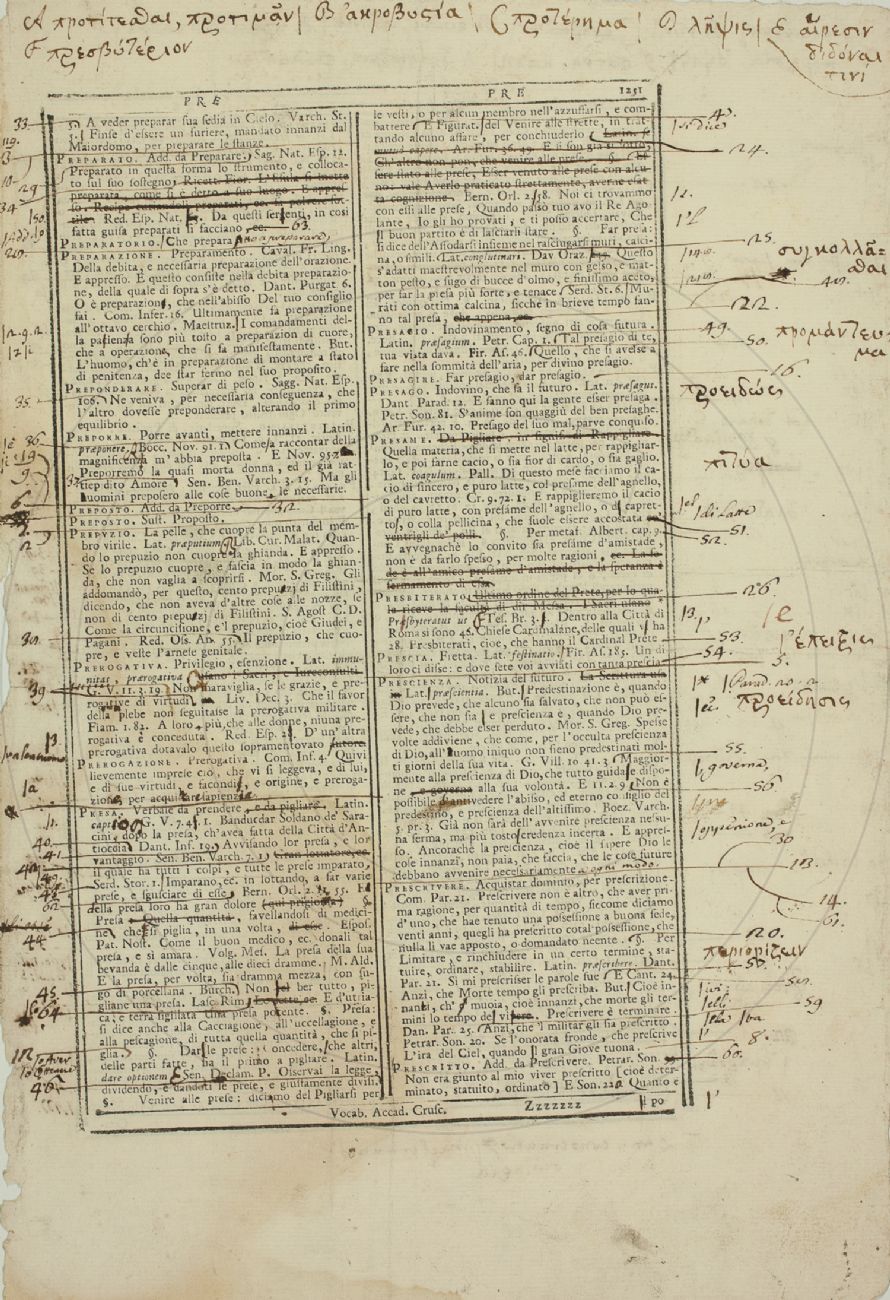 A προτίτεσθαι, προτιμᾶν | B ἀκροβυστία | C προτέρημα | D λῆψις | E αἵρεσιν
διδόναι
τινί
F πρεσβυτέριον
PRE
PRE 1251
A veder preparar sua sedia in Cielo. Varch. St.
5. Finse d'essere un furiere, mandato innanzi dal
Maiordomo, per preparare le stanze.
PREPARATO. Add. da Preparare. Sag. Nat. Esp. 12.
Preparato in questa forma lo strumento, e colloca-
to sul suo sostegno,
Red. Esp. Nat. Da questi serpenti, in così
fatta guisa preparati si facciano 63
PREPARATORIO. Che prepara
PREPARAZIONE. Preparamento. Caval. Fr. Ling.
Della debita, e necessaria preparazione dell'orazione.
E appresso. E questo consiste nella debita preparazio-
ne, della quale di sopra s'è detto. Dant. Purgat. 6.
O è preparazion, che nell'abisso Del tuo consiglio
fai. Com. Infer. 16. Ultimamente fa preparazione
all'ottavo cerchio. Maestruz. I comandamenti del-
la pasienza sono più tosto a preparazion di cuore,
che a operazione, che si fa manifestamente. But.
L'huomo, ch'è in preparazione di montare a stato
di penitenza, dee star fermo nel suo proposito.
PREPONDERARE. Superar di peso. Sagg. Nat. Esp.
106. Ne veniva, per necessaria conseguenza, che
l'altro dovesse preponderare, alterando il primo
equilibrio.
PREPORRE. Porre avanti, mettere innanzi. Latin.
præponere, Bocc. Nov. 91. 1. Come a raccontar della
magnificenza m'abbia preposta. E Nov. 95. 2.
Preporremo la quasi morta donna, ed il già rat-
tiepidito Amore. Sen. Ben. Varch. 3. 15. Ma gli
uomini proposero alle cose buone, le necessarie.
PREPOSTO. Add. da Preporre.
PREPOSTO. Sust. Proposto.
PREPUZIO. La pelle, che cuopre la punta del mem-
bro virile. Lat. præputium. Lib. Cur. Malat. Quan-
do lo prepuzio non cuopre la ghianda. E appresso.
Se lo prepuzio cuopre, e fascia in modo la ghian-
da, che non vaglia a scoprirsi. Mor. S. Greg. Gli
addomandò, per questo, cento prepuzj di Filistini,
dicendo, che non aveva d'altre cose alle nozze, se
non di cento prepuzj di Filistini. S. Agost. C. D.
Come la circuncisione, e'l prepuzio, cioè Giudei, e
Pagani. Red. Oss. An. 55. Il prepuzio, che cuo-
pre, e veste l'arnese genitale.
PREROGATIVA. Privilegio, esenzione. Lat. immu-
nitas, prærogativa
G. V. 11. 3. 19. Non maraviglia, se le grazie, e pre-
rogative di virtudi Liv. Dec. 3. Che il favor
della plebe non seguitasse la prerogativa militare.
Fiam. 1. 82. A loro più, che alle donne, niuna pre-
rogativa è conceduta. Red. Esp. 2. D'un'altra
prerogativa dotavalo questo sopramentovato
PREROGAZIONE. Prerogativa. Com. Inf. 4. Quivi
lievemente imprele ciò, che vi si leggeva, e di lui,
e di sue virtudi, e facondia, e origine, e preroga-
zione, per acquistare sapienza.
PRESA. Verbale da prendere, e da pigliare. Latin.
G. V. 7. 4. 1. Banducdar Soldano de' Sara-
cini, dopo la presa, ch'avea fatta della Città d'An-
tioccia. Dant. Inf. 19. Avvilando lor presa, e lor
vantaggio. Sen. Ben. Varch. 7. 1.
il quale ha tutti i colpi, e tutte le prese imparato,
Serd. Stor. 1. Imparano, ec. in lottando, a far varie
prese, e sguisciare di esse. Bern. Orl. 2. 55. E
della presa loro ha gran dolore (qui prigionia) §.
Presa Quella quantità, favellandosi di medici-
ne che si piglia, in una volta, Espos.
Pat. Nost. Come il buon medico, ec. donali tal
presa, e sì amara. Volg. Mes. La presa della sua
bevanda è dalle cinque, alle dieci dramme. M. Ald.
E la presa, per volta, sia dramma mezza, con su-
go di porcellana. Burch. Non ber tutto, pi-
gliane una presa. Lasc. Rim. E d'utria-
ca, e terra sigillata Una presa potente. §. Presa:
si dice anche alla Cacciagione, all'uccellagione, e
alla pescagione, di tutta quella quantità, che si pi-
glia. §. Dar le prese: concedere, che altri,
delle parti fatte, ha il primo a pigliare. Latin.
dare optionem. Sen. Declam. P. Observai la legge,
dividendo, e dandoti le prete, e giustamente divisi.
§. Venire alle prese: diciamo del Pigliarsi per
le vesti, o per alcun membro nell'azzuffarsi, e com-
battere. E Figurat. del Venire alle strette, in trat-
tando alcuno affare, per conchiuderlo
Ar. Fur. 36. 49. E si son già sì sotto,
Ch'altro non può, che venire alle prese. §. Es-
sere stato alle prese, Esser venuto alle prese con alcu-
no: vale Averlo praticato strettamente, averne esat-
ta cognizione. Bern. Orl. 2. 58. Noi ci trovammo
con essi alle prese, Quando passò tuo avo il Re Ago-
lante, Io gli ho provati, e ti posso accertare, Che
il buon partito è di lasciarli stare. §. Far presa:
si dice dell'Assodarsi insieme nel rasciugarsi muri, calci-
na, o simili. Lat. conglutinari. Dav. Oraz. Questo
s'adatti maestrevolmente nel muro con gesso, e mat-
ton pesto, e sugo di bucce d'olmo, e finissimo aceto,
per far la presa più forte, e tenace. Serd. St. 6. Mu-
rati con ottima calcina, sicchè in brieve tempo fan-
no tal presa, che appena, ec.
PRESAGIO. Indovinamento, segno di cosa futura.
Latin. præsagium. Petr. Cap. 1. Tal presagio di te,
tua vista dava. Fir. As. 46. Quello, che si avesse a
fare nella sommità dell'aria, per divino presagio.
PRESAGIRE. Far presagio, dar presagio.
PRESAGO. Indovino, che sa il futuro. Lat. præsagus.
Dant. Parad. 12. E fanno qui la gente esser presaga.
Petr. Son. 81. S'anime son quaggiù del ben presaghe.
Ar. Fur. 42. 10. Presago del suo mal, parve conquiso.
PRESAME. Da Pigliare, in signific. di Rappigliare.
Quella materia, che si mette nel latte, per rappigliar-
lo, e poi farne cacio, o sia fior di cardo, o sia gaglio.
Lat. coagulum. Pall. Di questo mese facciamo il ca-
cio di sincero, e puro latte, col presame dell'agnello,
o del cavretto. Cr. 9. 72. 1. E rappiglieremo il cacio
di puro latte, con presame dell'agnello, o di capret-
to, o colla pellicina, che suole essere accostata
ventrigli de' polli. §. Per metaf. Albert. cap. 9.
E avvegnachè lo convito sia presame d'amistade,
non è da farlo spesso, per molte ragioni, ec. La se-
de è all'amico presame d'amistade, e la speranza è
fermamento di essa.
PRESBITERATO. Ultimo ordine del Prete, per lo qua-
le riceve la facultà di dir Messa. I Sacri usano
Presbiteratus us Tes. Br. 3. Dentro alla Città di
Roma si sono 46. Chiese Cardinalane, delle quali v'ha
28. Presbiterati, cioè, che hanno il Cardinal Prete
PRESCIA. Fretta. Lat. festinatio. Fir. As. 185. Un di
loro ci disse: e dove sete voi avviati con tanta prescia
PRESCIENZA. Notizia del futuro. La Scrittura usa
Lat. præscientia. But. Predestinazione è, quando
Dio prevede, che alcuno sia salvato, che non può es-
sere, che non sia e prescienza è, quando Dio pre-
vede, che debbe esser perduto. Mor. S. Greg. Spesse
volte addiviene, che come, per l'occulta prescienza
di Dio, all'uomo iniquo non sieno predestinati mol-
ti giorni della sua vita. G. Vill. 10. 41. 3. Maggior-
mente alla prescienza di Dio, che tutto guida e dispo-
ne e governa alla sua volontà. E 11. 2. 9. Non è
possibile d'antivedere l'abisso, ed eterno consiglio del
predestino, e prescienza dell'altissimo. Boez. Varch.
5. pr. 3. Già non sarà dell'avvenire prescienza nessu-
na ferma, ma più tosto credenza incerta. E appres-
so. Ancorachè la prescienza, cioè il sapere Dio le
cose innanzi, non paia, che faccia, che le cose future
debbano avvenire necessariamente a ogni modo.
PRESCRIVERE. Acquistar dominio, per prescrizione.
Com. Par. 21. Prescrivere non è altro, che aver pri-
ma ragione, per quantità di tempo, siccome diciamo
d'uno, che hae tenuto una possessione a buona fede,
venti anni, quegli ha prescritto cotal possessione, che
nulla li vae apposto, o domandato neente. §. Per
Limitare, e rinchiudere in un certo termine, sta-
tuire, ordinare, stabilire. Latin. præscribere. Dant.
Par. 21. Sì mi prescrisser le parole sue. E Cant. 24.
Anzi, che Morte tempo gli prescriba. But. Cioè in-
nanzi, ch'e' muoia, cioè innanzi, che morte gli ter-
mini lo tempo del vivere. Prescrivere è terminare.
Dan. Par. 25. Anzi, che 'l militar gli sia prescritto.
Petrar. Son. 20. Se l'onorata fronde, che prescrive
L'ira del Ciel, quando il gran Giove tuona.
PRESCRITTO. Add. da Prescrivere. Petrar. Son.
Non era giunto al mio viver prescritto (cioè deter-
minato, statuito, ordinato) E Son. 220. Quanto e
Vocab. Accad. Crusc. Zzzzzzz Il po
συγκολλᾶ-
σθαι
προμάντευ-
μα
προειδώς
πιτύα
di Latte
ἔπειξις
Parad. 20. 2
προείδησις
governa,
oppenione, e
περιορίζειν